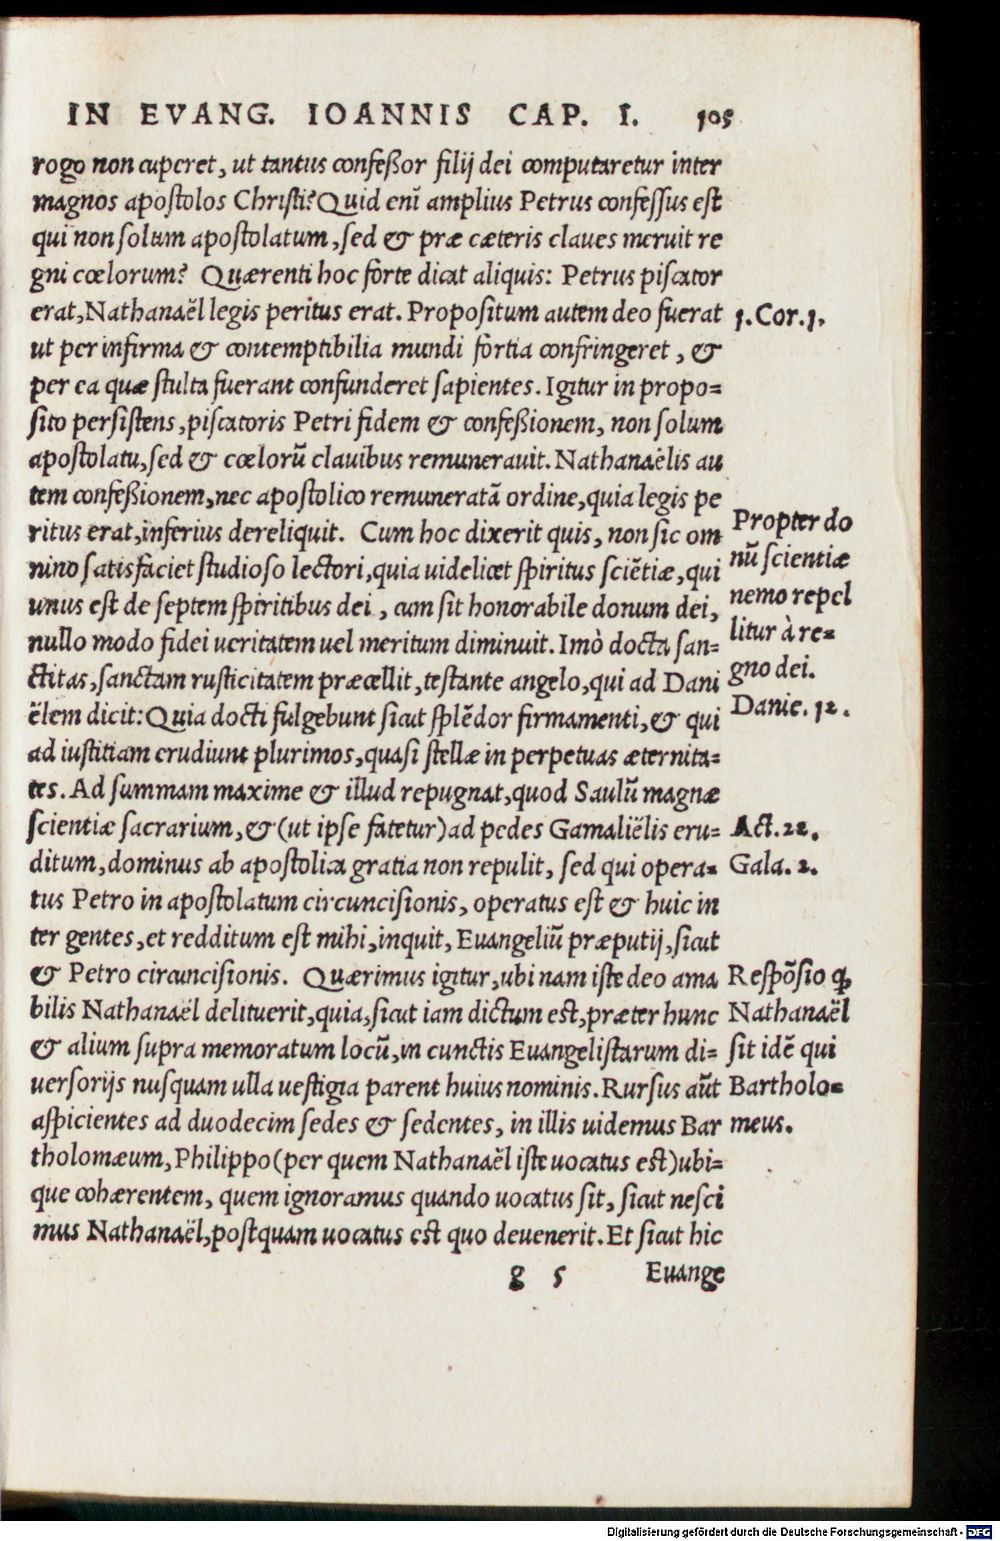 IN EVANG. IOANNIS CAP. I. 105
rogo non cuperet, ut tantus confeßor filij dei computaretur inter
magnos apostolos Christi? Quid enī amplius Petrus confessus est
qui non solum apostolatum, sed & præ cæteris claues meruit re
gni cœlorum? Quærenti hoc forte dicat aliquis: Petrus piscator
erat, Nathanaël legis peritus erat. Propositum autem deo fuerat
1. Cor. 1.
ut per infirma & contemptibilia mundi fortia confringeret, &
per ea quæ stulta fuerant confunderet sapientes. Igitur in propo=
sito persistens, piscatoris Petri fidem & confeßionem, non solum
apostolatu, sed & cœlorū clauibus remunerauit. Nathanaëlis au
tem confeßionem, nec apostolico remuneratā ordine, quia legis pe
ritus erat, inferius dereliquit. Cum hoc dixerit quis, non sic om
nino satisfaciet studioso lectori, quia uidelicet spiritus sciētiæ, qui
unus est de septem spiritibus dei, cum sit honorabile donum dei,
nullo modo fidei ueritatem uel meritum diminuit. Imò docta san=
ctitas, sanctam rusticitatem præcellit, testante angelo, qui ad Dani
ëlem dicit: Quia docti fulgebunt sicut splēdor firmamenti, & qui
Propter do
nū scientiæ
nemo repel
litur à re=
gno dei.
Danie. 12.
ad iustitiam erudiunt plurimos, quasi stellæ in perpetuas æternita=
tes. Ad summam maxime & illud repugnat, quod Saulū magnæ
scientiæ sacrarium, & (ut ipse fatetur) ad pedes Gamaliëlis eru=
Act. 22.
ditum, dominus ab apostolica gratia non repulit, sed qui opera=
Gala. 2.
tus Petro in apostolatum circuncisionis, operatus est & huic in
ter gentes, et redditum est mihi, inquit, Euangeliū præputij, sicut
& Petro circuncisionis. Quærimus igitur, ubi nam iste deo ama
bilis Nathanaël delituerit, quia, sicut iam dictum est, præter hunc
& alium supra memoratum locū, in cunctis Euangelistarum di=
uersorijs nusquam ulla uestigia parent huius nominis. Rursus aūt
aspicientes ad duodecim sedes & sedentes, in illis uidemus Bar
Respōsio ꝙ
Nathanaël
sit idē qui
Bartholo=
meus.
tholomæum, Philippo (per quem Nathanaël iste uocatus est) ubi=
que cohærentem, quem ignoramus quando uocatus sit, sicut nesci
mus Nathanaël, postquam uocatus est quo deuenerit. Et sicut hic
g 5 Euange
Digitalisierung gefördert durch die Deutsche Forschungsgemeinschaft - DFG